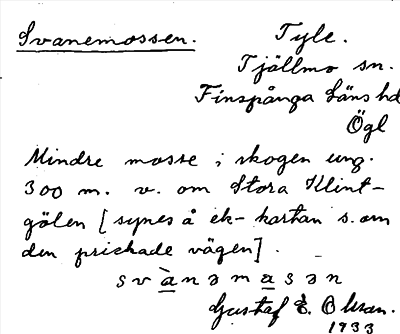 Svanemossen.
Tyle.
Tjällmo sn.
Finspånga läns hd
Ögl
Mindre mosse i skogen ung.
300 m. v. om Stora Klint-
gölen [synes å ek-kartan s. om
den prickade vägen].
svànəmasən
Gustaf E. Olsson.
1933